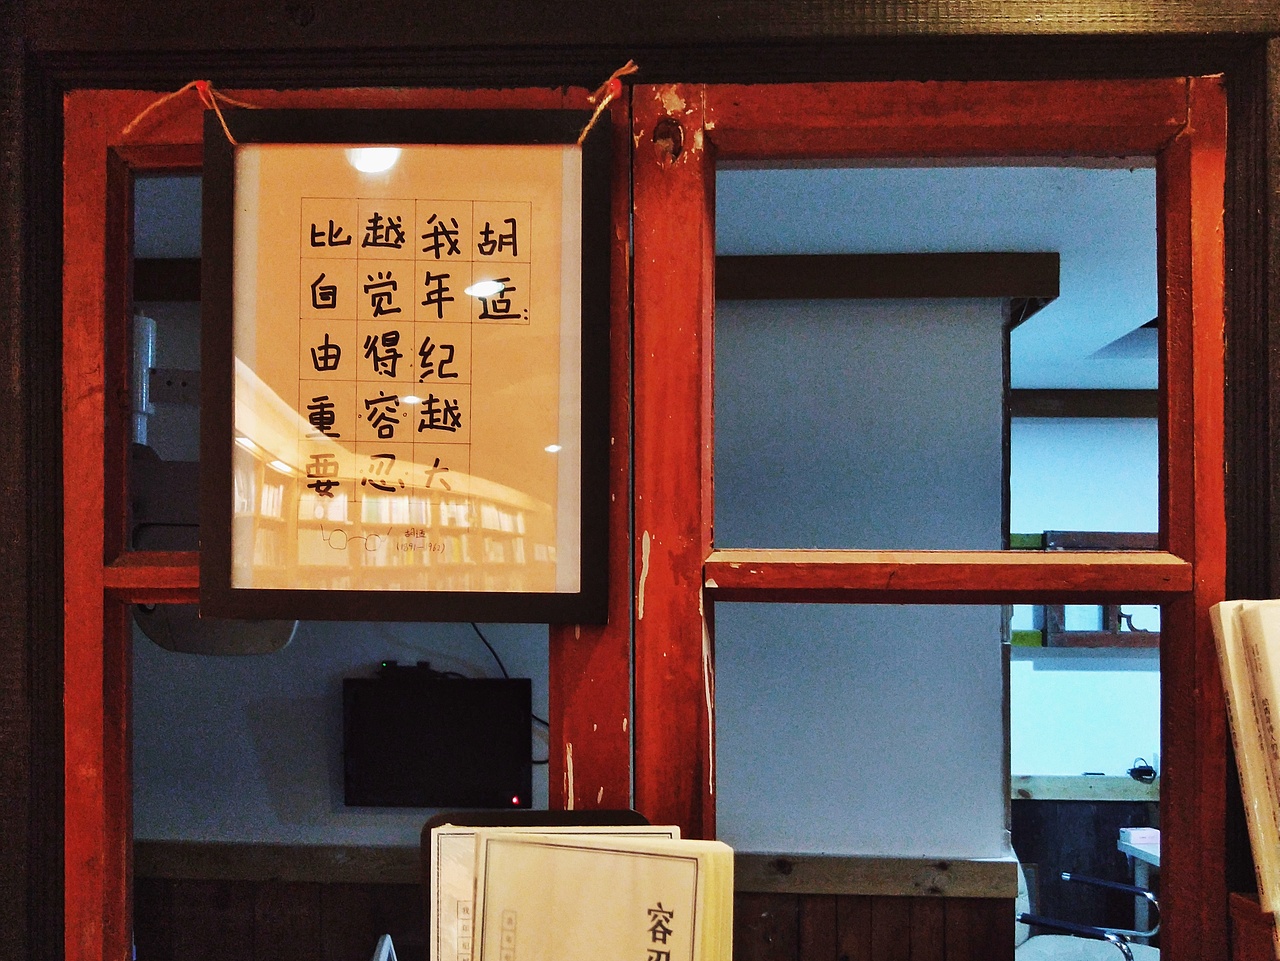 胡适:
我年纪越大
越觉得容忍
比自由重要
胡适
(1891-1962)
容忍